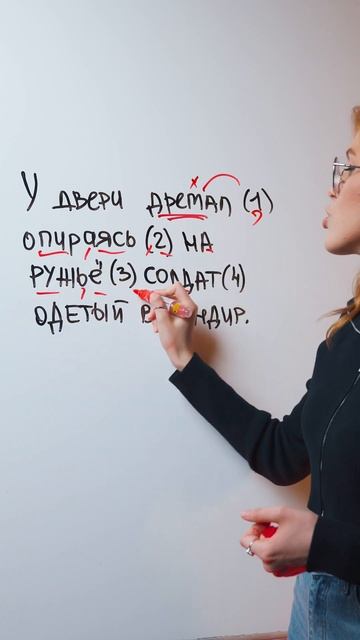 У двери дремал (1)
опираясь (2) на
ружьё (3) солдат (4)
одетый